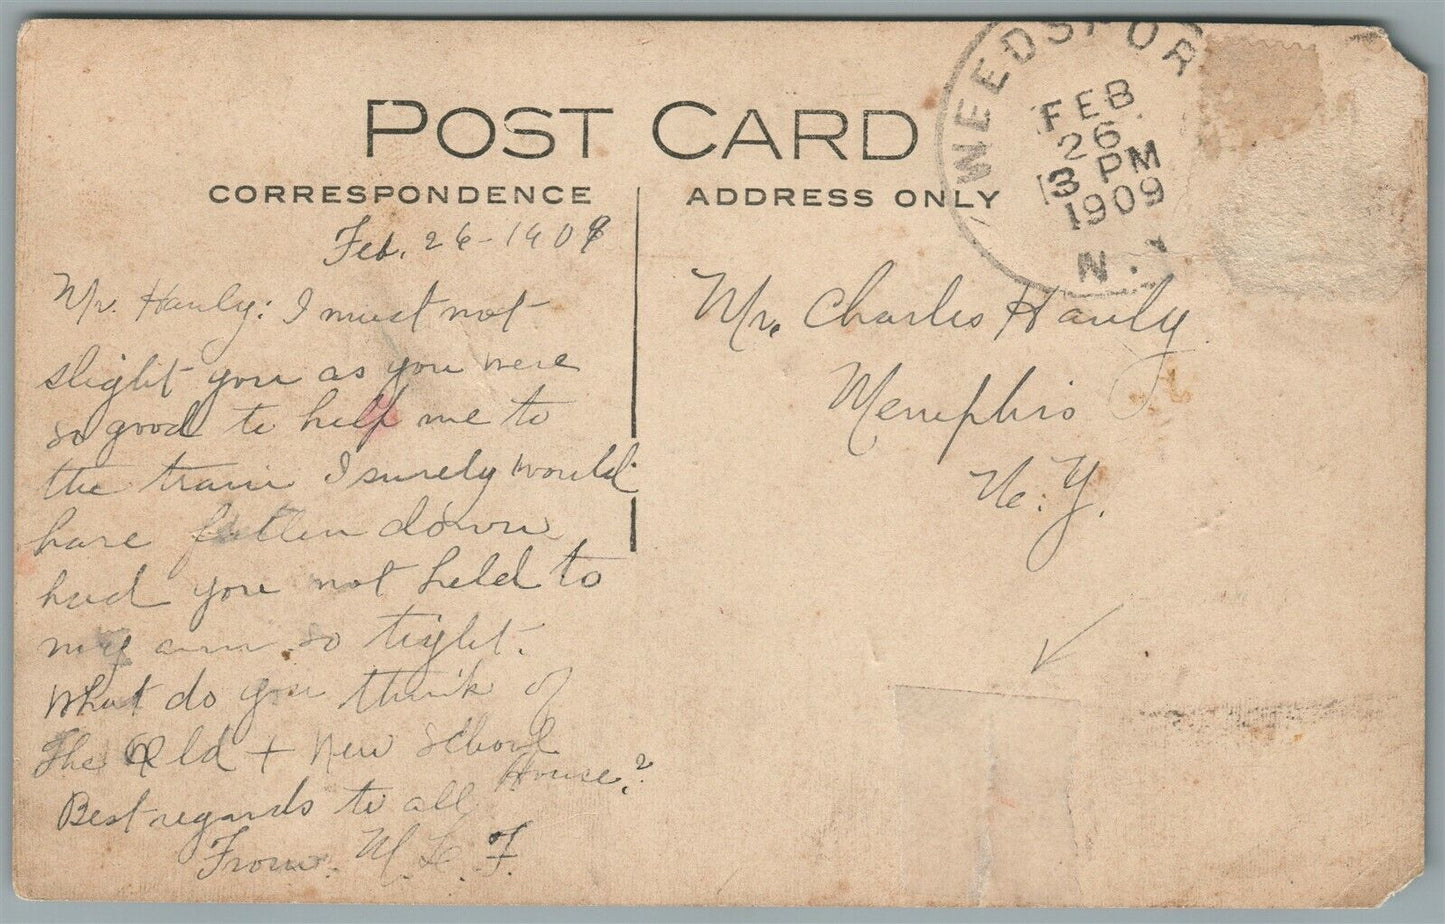 POST CARD
CORRESPONDENCE
ADDRESS ONLY
WEEDSPOR
FEB
26
3 PM
1909
N.Y
Feb. 26-1909
Mr. Hauly: I must not
slight you as you were
so good to help me to
the train I surely would
have fallen down
had you not held to
my arm so tight.
What do you think of
The Old + New School
House?
Best regards to all
From. M. L. F.
Mr. Charles Hauly
Memphis
N.Y.